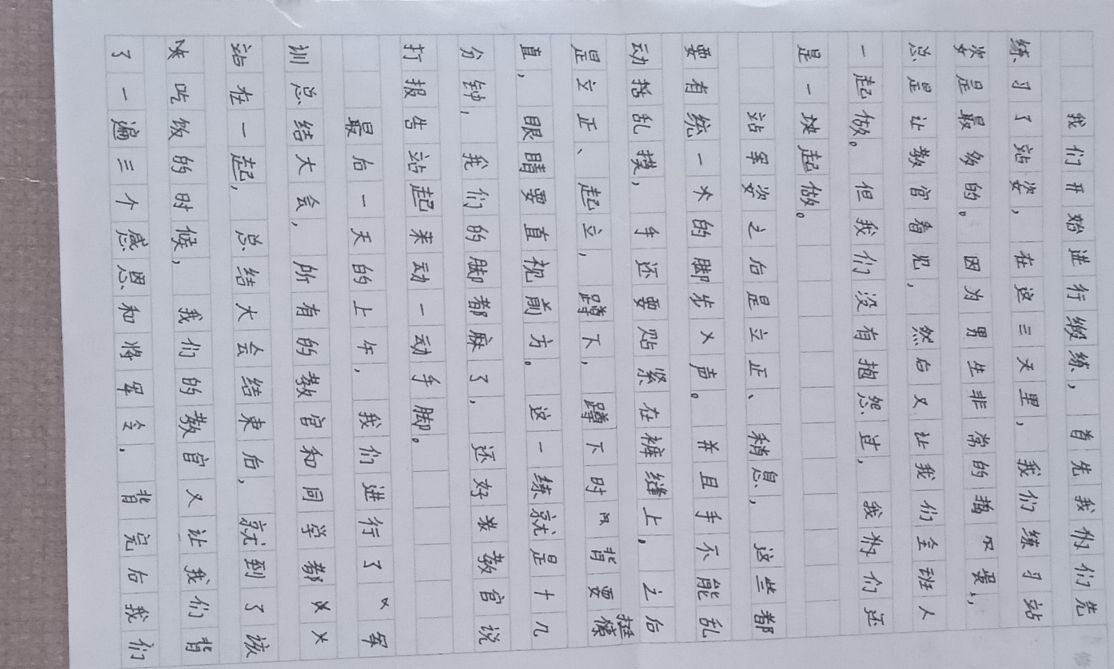 我们开始进行缎练，首先我们先
练习了站姿，在这三天里，我们练习站
姿是最多的。因为男生非常的捣蛋，
总是让教官看见，然后又让我们全班人
一起做。但我们没有抱怨过，我们还
是一块起做。
站军姿之后是立正、稍息，这些都
要有统一的脚步声。并且手不能乱
动乱摸，手还要贴紧在裤缝上。之后
是立正、起立，蹲下，蹲下时背要挺
直，眼睛要直视前方。这一练就是十几
分钟，我们的脚都麻了，还好教官说
打报告站起来动一动手脚。
最后一天的上午，我们进行了军
训总结大会，所有的教官和同学都
站在一起，总结大会结束后，就到了该
吃饭的时候，我们的教官又让我们背
了一遍三个感恩和将军令，背完后我们